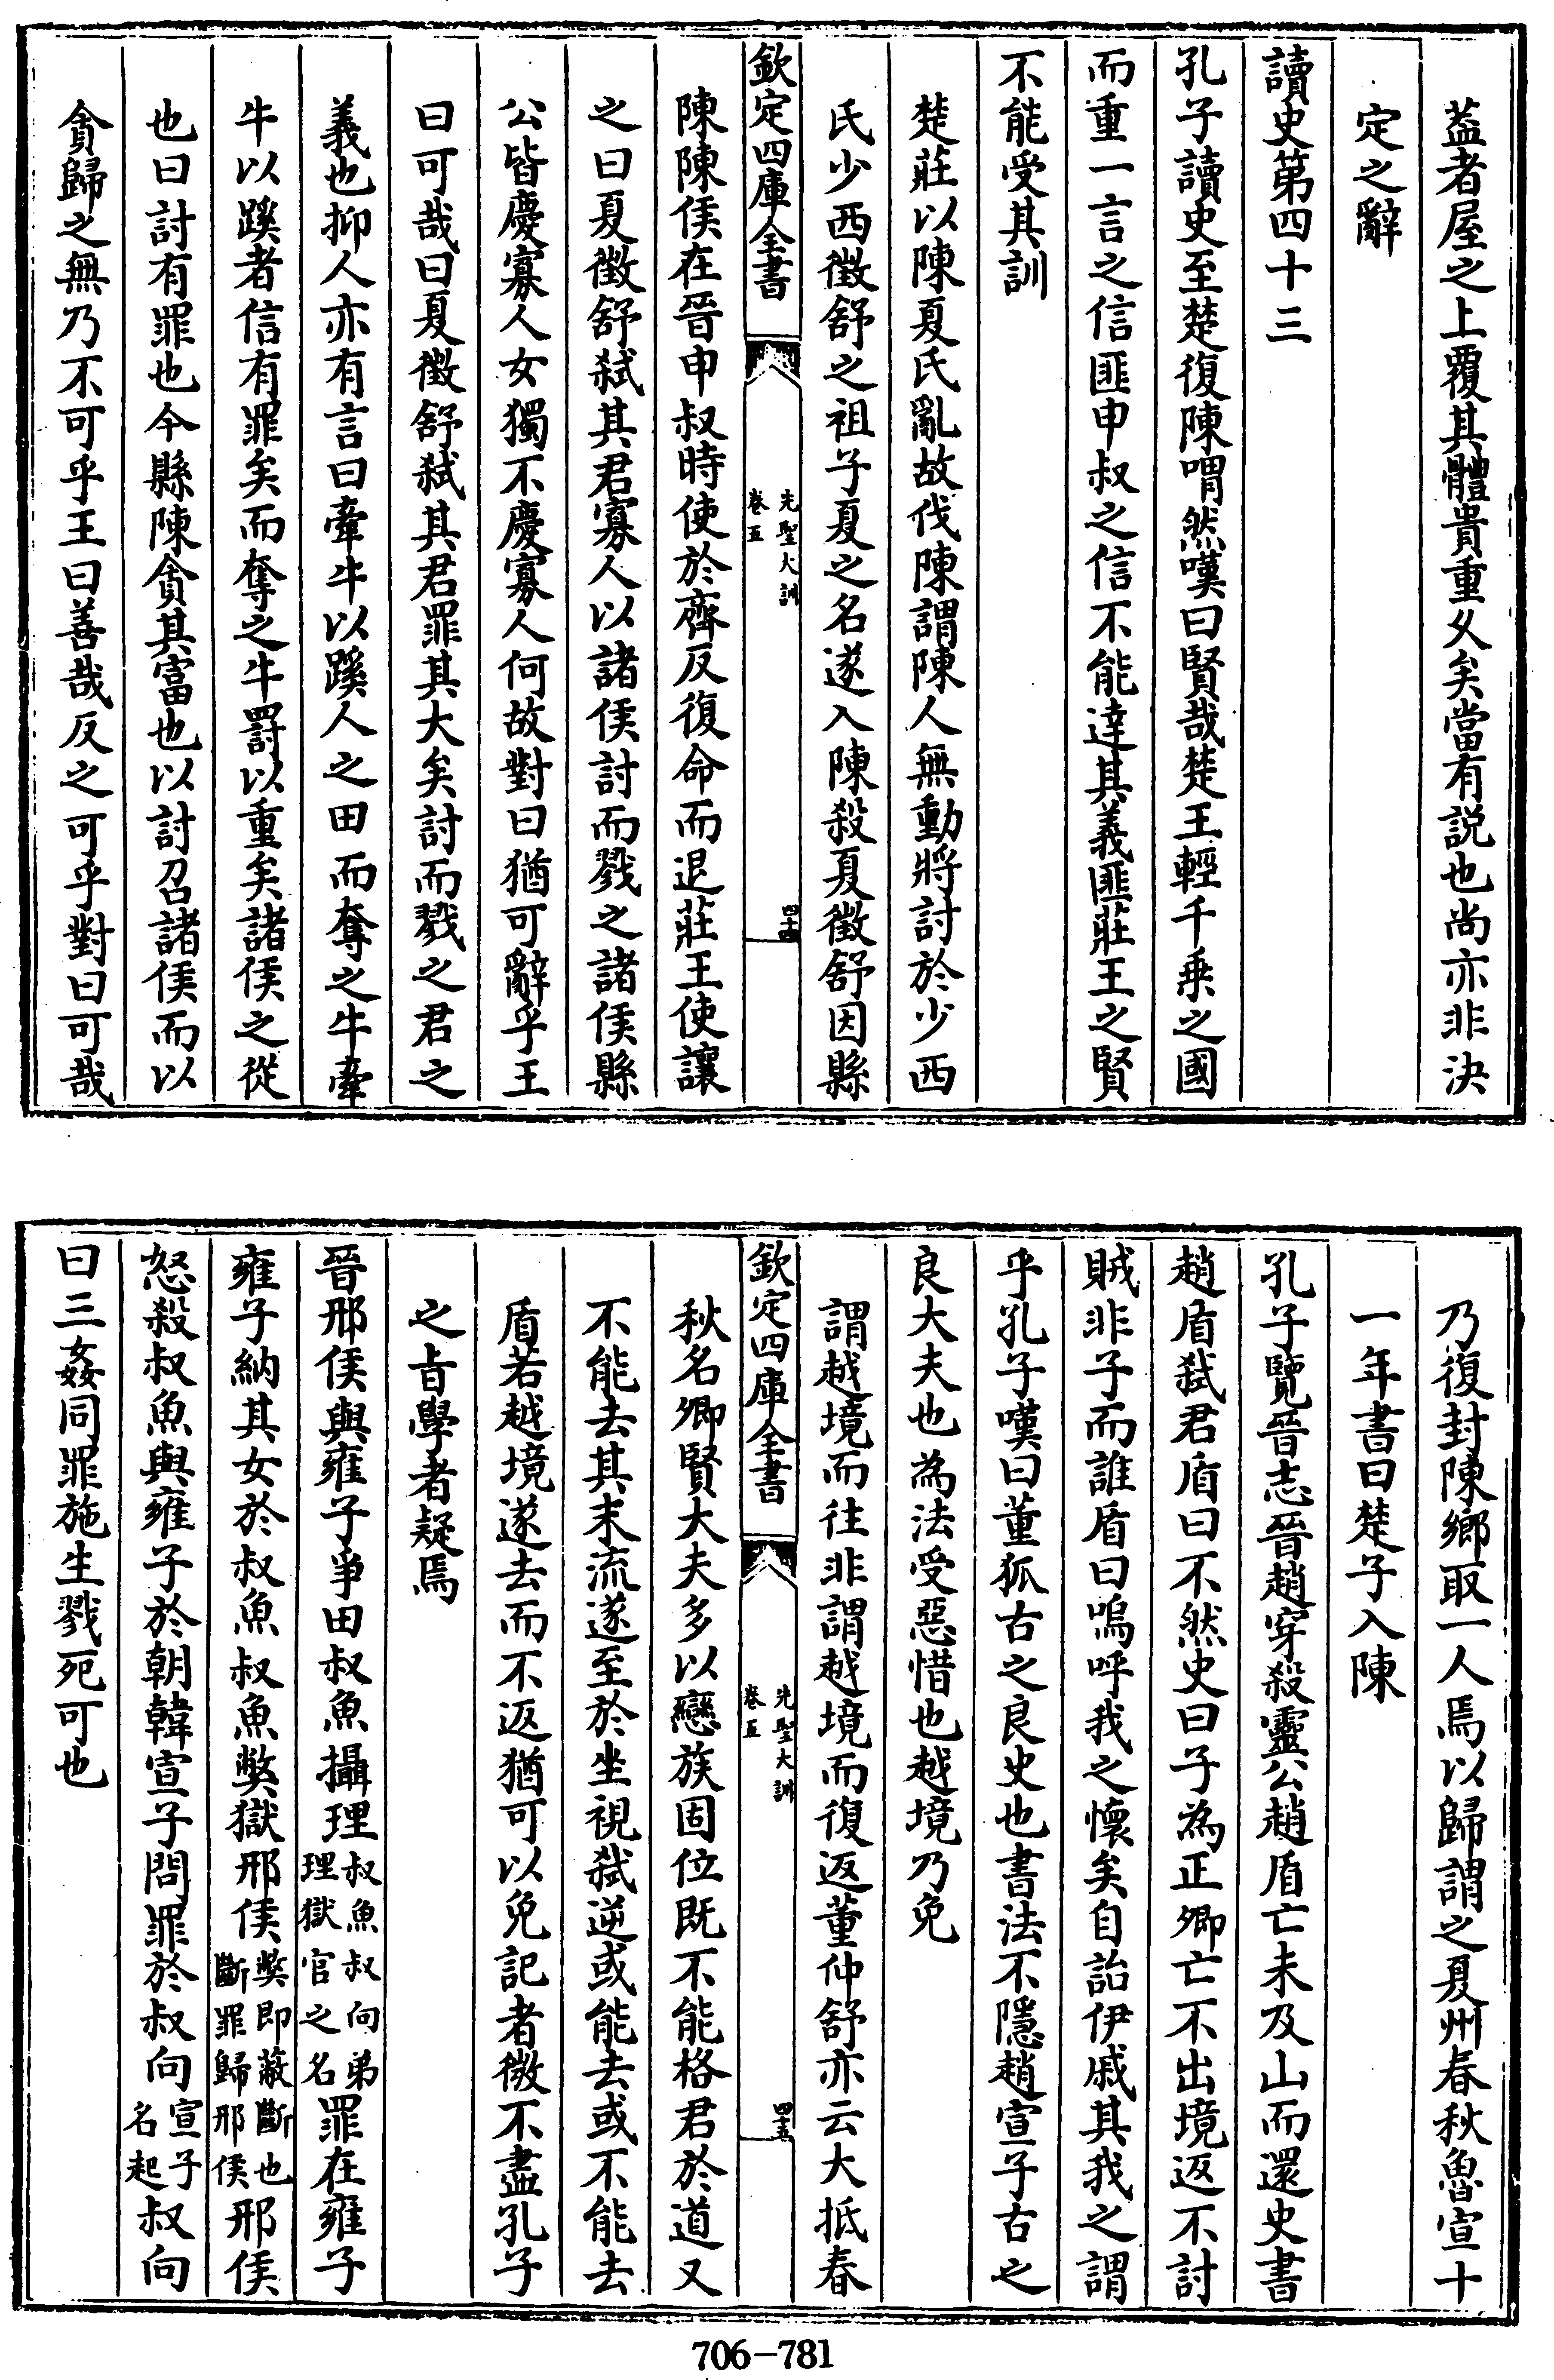 葢者屋之上覆其體貴重乆矣當有説也尚亦非決
定之辭
讀史第四十三
孔子讀史至楚復陳喟然嘆曰賢哉楚王輕千乘之國
而重一言之信匪申叔之信不能達其義匪莊王之賢
不能受其訓
楚莊以陳夏氏亂故伐陳謂陳人無動將討於少西
氏少西徵舒之祖子夏之名遂入陳殺夏徵舒因縣
欽定四庫全書
先聖大訓
卷五
四十四
陳陳侯在晉申叔時使於齊反復命而退莊王使讓
之曰夏徵舒弑其君寡人以諸侯討而戮之諸侯縣
公皆慶寡人女獨不慶寡人何故對曰猶可辭乎王
曰可哉曰夏徵舒弑其君罪其大矣討而戮之君之
義也抑人亦有言曰牽牛以蹊人之田而奪之牛牽
牛以蹊者信有罪矣而奪之牛罰以重矣諸侯之從
也曰討有罪也今縣陳貪其富也以討召諸侯而以
貪歸之無乃不可乎王曰善哉反之可乎對曰可哉
乃復封陳鄉取一人焉以歸謂之夏州春秋魯宣十
一年書曰楚子入陳
孔子覽晉志晉趙穿殺靈公趙盾亡未及山而還史書
趙盾弑君盾曰不然史曰子為正卿亡不出境返不討
賊非子而誰盾曰嗚呼我之懷矣自詒伊戚其我之謂
乎孔子嘆曰董狐古之良史也書法不隱趙宣子古之
良大夫也為法受惡惜也越境乃免
謂越境而往非謂越境而復返董仲舒亦云大抵春
欽定四庫全書
先聖大訓
卷五
四十五
秋名卿賢大夫多以戀族固位既不能格君於道又
不能去其末流遂至於坐視弑逆或能去或不能去
盾若越境遂去而不返猶可以免記者微不盡孔子
之㫖學者疑焉
晉邢侯與雍子爭田叔魚攝理叔魚叔向弟理獄官之名罪在雍子
雍子納其女於叔魚叔魚弊獄邢侯弊即蔽斷也斷罪歸邢侯邢侯
怒殺叔魚與雍子於朝韓宣子問罪於叔向宣子名起叔向
曰三姦同罪施生戮死可也
706-781